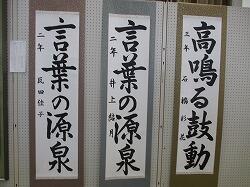 高鳴る鼓動
石橋
言葉の源泉
二年 井上結月
言葉の源泉
二年 田佳子